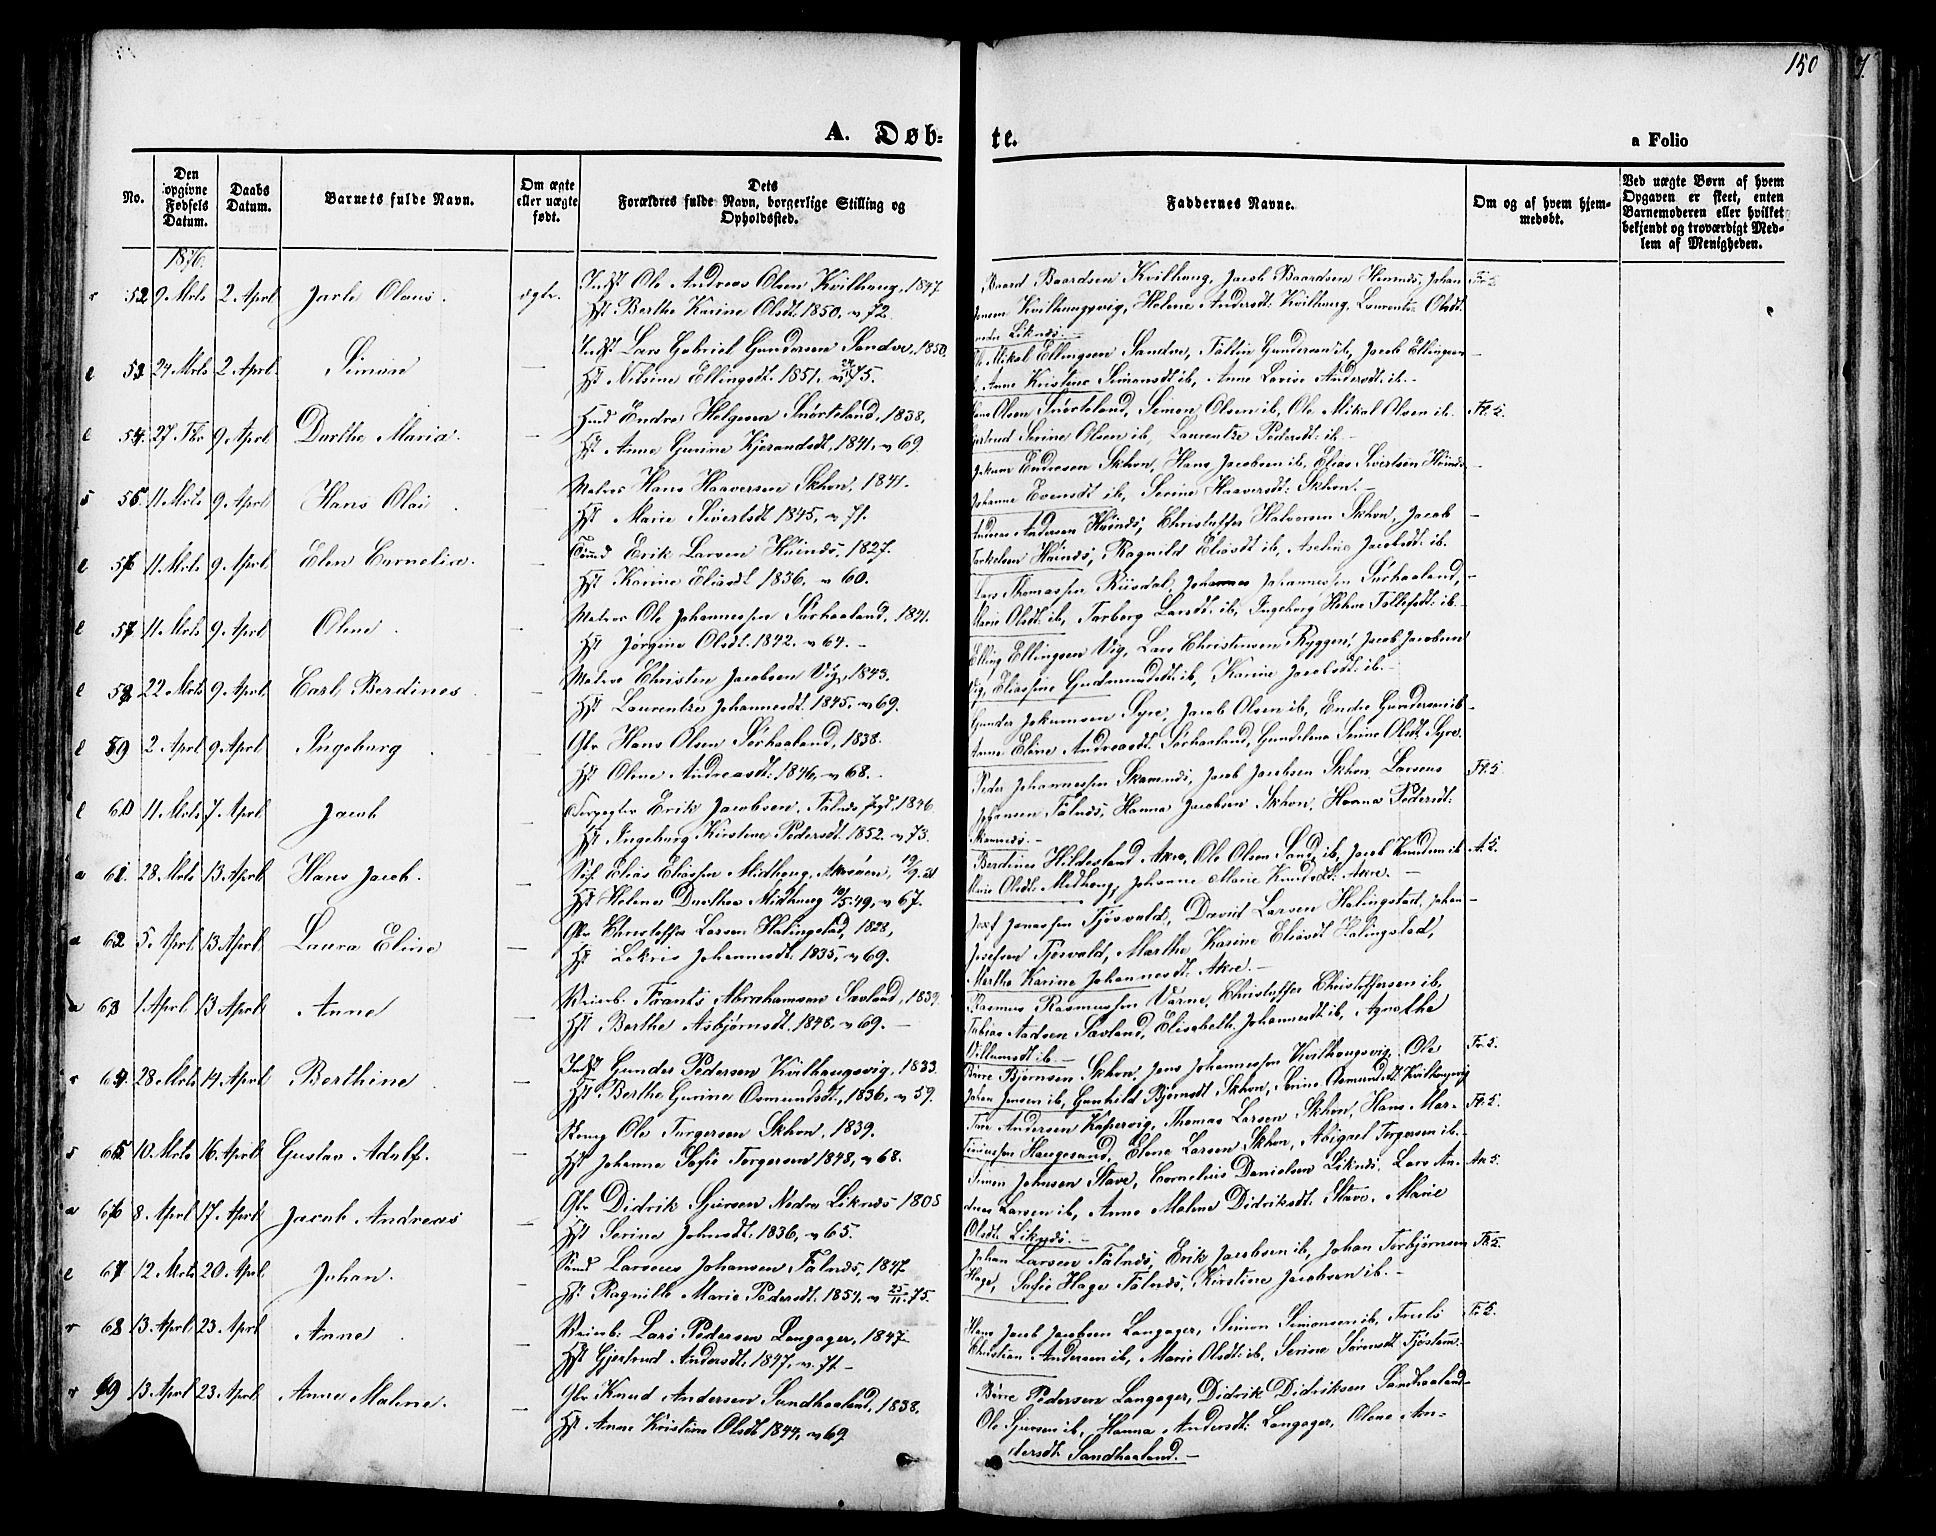 150
A. Døb=
te.
a Folio
No.
Den opgivne Fødsels Datum.
Daabs Datum.
Barnets fulde Navn.
Om ægte eller uægte født.
Dets Forældres fulde Navn, borgerlige Stilling og Opholdssted.
Faddernes Navne.
Om og af hvem hjemmedøbt.
Ved uægte Børn af hvem Opgaven er skeet, enten Barnemoderen eller hvilket bekjendt og troværdigt Medlem af Menigheden.
1876.
52 9 Mrts 2 Aprl Jarle Olaus. ægte. Indst Ole Andreas Olsen Kvilhaug, 1847
Hst Berthe Karine Olsdt. 1850, v 72.
Baard Baardsen Kvilhaug, Jacob Baardsen Hemnes, Johan
Jensen Kvilhaugsvig, Helene Andersdt: Kvilhaug, Laurentze Olsdt.
nedre Liknes.
53 27 Mrts 2 Aprl Simon — Indst Lars Gabriel Gundersen Sandve, 1850.
Hst Nilsine Ellingsdt. 1851, v 75.
Mikal Ellingsen Sandve, Faltin Gundersen ib, Jacob Ellingsen
Anne Kristine Simonsdt ib, Anne Larine Andersdt: ib.
54 27 Fbr 9 Aprl Dorthe Maria. — Hmd Endre Helgesen Snørteland, 1838,
Hst Anne Gurine Kjerandsdt, 1841, v 69
Olsen Snørteland, Simon Olsen ib, Ole Mikal Olsen ib.
Gjertrud Serine Olsen ib, Laurentze Pedersdt: ib.
55 11 Mrts 9 Aprl Hans Olai — Matros Hans Haaversen Skhvn, 1841.
Hst Marie Sivertsdt 1845, v 71.
Endresen Skhvn, Hans Jacobsen ib, Elias Sivertsen Húinds
Johanne Evensdt ib, Serine Haaversdt: Skhvn.
56 11 Mrts 9 Aprl Elen Cornelia. — Tømmd Erik Larsen Húinds, 1827.
Hst Karine Eliasdt 1836, v 60.
Andreas Andersen Húinds, Christoffer Halvorsen Skhvn, Jacob
Torkelsen Húinds, Ragnild Eliasdt ib, Aseline Jacobsdt ib.
57 11 Mrts 9 Aprl Oline — Matros Ole Johannessen Sørhaaland, 1841.
Hst Jørgine Olsdt. 1842. v 64.
Lars Thomassen Riisdal, Johannes Johannessen Sørhaaland,
Marie Olsdt: ib, Torborg Larsdt: ib, Ingeborg Helene Tollefsdt: ib.
58 22 Mrts 9 Aprl Carl Berdines — Matros Christen Jacobsen Vig, 1843.
Hst Laurentze Johannesdt. 1845, v 69.
Elling Ellingsen Vig, Lars Christensen Ryggen, Jacob Jacobsen
Vig, Eliassine Gudmundsdt ib, Karine Jacobsdt: ib.
59 2 Aprl 9 Aprl Ingeborg — Gbr Hans Olsen Sørhaaland, 1838.
Hst Oline Andreasdt: 1846, v 68.
Gunder Jokumsen Syre, Jacob Olsen ib, Endre Gundersen ib
Anne Eline Andreasdt. Sørhaaland, Gundelena Serine Olsdt. Syre.
60 11 Mrts 7 Aprl Jacob — Erik Jacobsen, Falnes Pgd, 1846
Hst Ingeborg Kirstine Pedersdt. 1852. v 73.
Peder Johannessen Skarnnes, Jacob Jacobsen Skhvn, Larsens
Johansen Falnes, Hanna Jacobsen Skhvn, Hanna Pedersdt:
Skarnnes.
61 28 Mrts 13 Aprl Hans Jacob. — Elias Eliassen Midhaug, Akrøen,
Hst Helene Dorthea Midhaug 49, v 67.
Berdines Hildesland Akre, Ole Olsen Sand ib, Jacob Knudsen ib
Marie Olsdt. Medhaug, Johanne Marie Knudsdt. Akre.
62 5 Aprl 13 Aprl Laura Eline — Gbr Christoffer Larsen Halingstad, 1828,
Hst Johannesdt. 1835, v 69.
Josef Jonassen Tjøsvald, David Larsen Halingstad, Johan
Josefsen Tjøsvald, Marthe Karine Eliasdt Halingstad,
Marthe Karine Johannesdt: Akre.
63 1 Aprl 13 Aprl Anne — Frants Abrahamsen Sevland, 1839.
Hst Berthe Asbjørnsdt. 1848, v 69.
Rasmus Rasmussen Varne, Christoffer Christoffersen ib,
Tobias Aadsen Sevland, Elisabeth Johannesdt ib, Agnethe
Villumsdt ib.
64 28 Mrts 14 Aprl Berthine — Indst Gunder Pedersen Kvilhaugsvig, 1833
Hst Berthe Gurine Osmundsdt, 1836, v 59.
Børre Bjørnsen Skhvn, Jens Johannessen Kvilhaugsvig, Ole
Johan Jensen ib, Gunhild Bjørnsdt Skhvn, Serine Osmundsdt. Kvilhaugsvig
65 10 Mrts 16 Aprl Gustav Adolf. — Ole Torgersen Skhvn, 1839.
Hst Johanne Sofie Torgersen 1848, v 68.
Tore Andersen Kopervig, Thomas Larsen Skhvn, Hans Mar-
Haugesund, Elene Larsen Skhvn, Abigael Torgersen ib.
66 8 Aprl 17 Aprl Jacob Andreas — Gbr Didrik Sjursen Nedre Liknes 1808
Hst Serine Johnsdt. 1836, v 65.
Simon Johnsen Stave, Cornelius Danielsen Liknes, Lars An-
dreas Larsen ib, Anne Malene Didriksdt. Stave, Marie
Olsdt. Liknes.
67 12 Mrts 20 Aprl Johan. — Larsens Johansen Falnes, 1847
Hst. Ragnille Marie Pedersdt. 1854, v 25/11 75.
Johan Larsen Falnes, Erik Jacobsen ib, Johan Torbjørnsen
Hage, Sofie Hage Falnes, Kirstine Jacobsen ib.
68 13 Aprl 23 Aprl Anne — Lars Pedersen Langager, 1847
Hst Gjertrud Andersdt. 1847, v. 71
Hans Jacob Jacobsen Langager, Simon Simonsen ib, Truls
Christian Andersen ib, Marie Olsdt: ib, Serine Sørensdt Tjøstem.
69 13 Aprl 23 Aprl Anne Malene. — Gbr Knud Andersen Sandhaaland, 1838,
Hst. Anne Kristine Olsdt 1844, v 69
Børre Pedersen Langager, Didrik Didriksen Sandhaaland
Ole Sjursen ib, Hanna Andersdt: Langager, Oline An-
dersdt Sandhaaland.